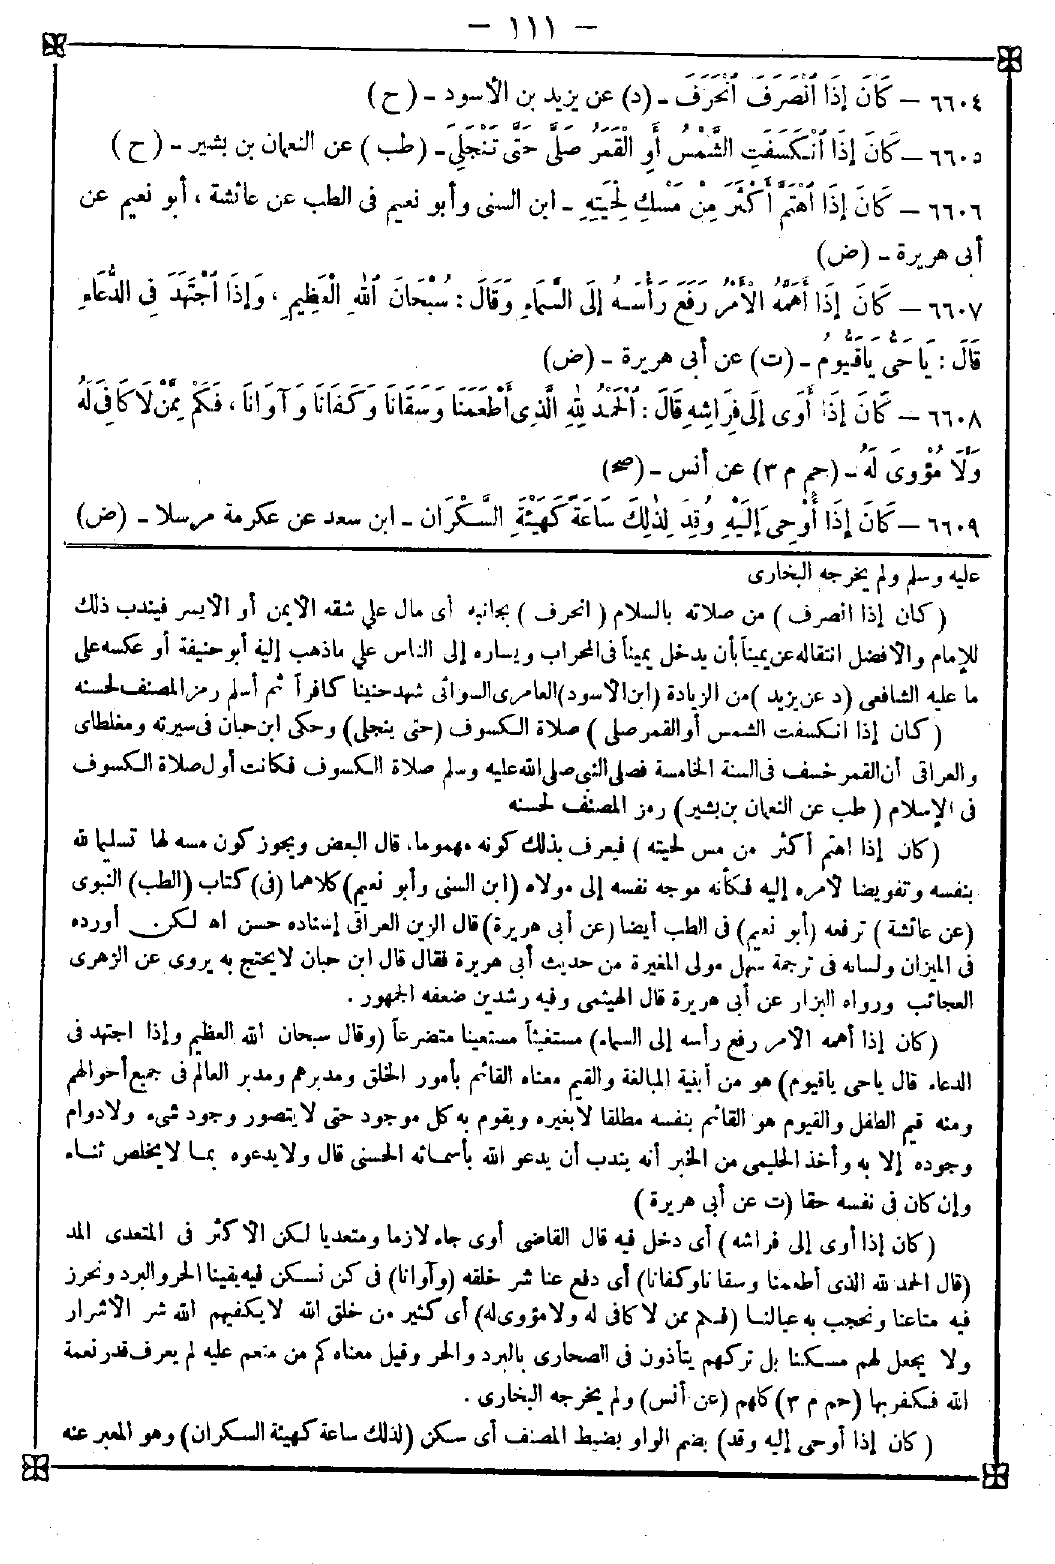 — ١١١ —
٦٦٠٤ — كَانَ إِذَا ٱنْصَرَفَ ٱنْحَرَفَ ـ (د) عن يزيد بن الأسود ـ (ح)
٦٦٠٥ — كَانَ إِذَا ٱنْكَسَفَتِ الشَّمْسُ أَوِ الْقَمَرُ صَلَّى حَتَّى تَنْجَلِيَ ـ (طب) عن النعمان بن بشير ـ (ح)
٦٦٠٦ — كَانَ إِذَا ٱهْتَمَّ أَكْثَرَ مِنْ مَسْكِ لِحْيَتِهِ ـ ابن السنى وأبو نعيم فى الطب عن عائشة ، أبو نعيم عن
أبى هريرة ـ (ض)
٦٦٠٧ — كَانَ إِذَا أَهَمَّهُ الْأَمْرُ رَفَعَ رَأْسَهُ إِلَى السَّمَاءِ وَقَالَ : سُبْحَانَ ٱللهِ الْعَظِيمِ ، وَإِذَا ٱجْتَهَدَ فِى الدُّعَاءِ
قَالَ : يَا حَىُّ يَا قَيُّومُ ـ (ت) عن أبى هريرة ـ (ض)
٦٦٠٨ — كَانَ إِذَا أَوَى إِلَى فِرَاشِهِ قَالَ : ٱلْحَمْدُ لِلهِ الَّذِى أَطْعَمَنَا وَسَقَانَا وَكَفَانَا وَآوَانَا ، فَكَمْ مِمَّنْ لَا كَافِىَ لَهُ
وَلَا مُؤْوِىَ لَهُ ـ (حم م ٣) عن أنس ـ (صح)
٦٦٠٩ — كَانَ إِذَا أُوحِىَ إِلَيْهِ وُقِدَ لِذٰلِكَ سَاعَةً كَهَيْئَةِ السَّكْرَان ـ ابن سعد عن عكرمة مرسلا ـ (ض)
عليه وسلم ولم يخرجه البخارى
(كان إذا انصرف) من صلاته بالسلام (انحرف) بجانبه أى مال على شقه الايمن أو الايسر فيندب ذلك
للإمام والافضل انتقاله عن يمينا بأن يدخل يمينا فى المحراب ويساره إلى الناس على ماذهب إلية أبو حنيفة أو عكسه على
ما عليه الشافعى (د عن يزيد) من الزيادة (ابن الاسود) العامرى السوائى شهد حنينا كافراً ثم أسلم رمز المصنف لحسنه
(كان إذا انكسفت الشمس أو القمر صلى) صلاة الكسوف (حتى ينجلى) وحكى ابن حبان فى سيرته ومغلطاى
والعراقى أن القمر خسف فى السنة الخامسة فصلى النبى صلى الله عليه وسلم صلاة الكسوف فكانت أول صلاة الكسوف
فى الإسلام (طب عن النعمان بن بشير) رمز المصنف لحسنه
(كان إذا اهتم أكثر من مس لحيته) فيعرف بذلك كونه مهموما. قال البعض ويجوز كون مسه لها تسليما لله
بنفسه وتفويضا لامره إليه فكأنه موجه نفسه إلى مولاه (ابن السنى وأبو نعيم) كلاهما (فى) كتاب (الطب) النبوى
(عن عائشة) ترفعه (أبو نعيم) فى الطب أيضا (عن أبى هريرة) قال الزين العراقى إسناده حسن اه لكن أورده
فى الميزان ولسانه فى ترجمة سهل مولى المغيرة من حديث أبى هريرة فقال قال ابن حبان لايحتج به يروى عن الزهرى
العجائب ورواه البزار عن أبى هريرة قال الهيثمى وفيه رشدين ضعفه الجمهور .
(كان إذا أهمه الامر رفع رأسه إلى السماء) مستغيثاً مستعينا متضرعاً (وقال سبحان الله العظيم وإذا اجتهد فى
الدعاء قال ياحى ياقيوم) هو من أبنية المبالغة والقيم معناه القائم بأمور الخلق ومدبرهم ومدبر العالم فى جميع أحوالهم
ومنه قيم الطفل والقيوم هو القائم بنفسه مطلقا لابغيره ويقوم به كل موجود حتى لايتصور وجود شىء ولادوام
وجوده إلا به وأخذ الحليمى من الخبر أنه يندب أن يدعو الله بأسمائه الحسنى قال ولايدعوه بما لايخلص ثناء
وإن كان فى نفسه حقا (ت عن أبى هريرة)
(كان إذا أوى إلى فراشه) أى دخل فيه قال القاضى أوى جاء لازما ومتعديا لكن الاكثر فى المتعدى المد
(قال الحمد لله الذى أطعمنا وسقانا وكفانا) أى دفع عنا شر خلقه (وآوانا) فى كن نسكن فيه يقينا الحر والبرد ونحرز
فيه متاعنا ونحجب به عيالنا (فكم ممن لا كافى له ولا مؤوى له) أى كثير من خلق الله لايكفيهم الله شر الاشرار
ولا يجعل لهم مسكنا بل تركهم يتأذون فى الصحارى بالبرد والحر وقيل معناه كم من منعم عليه لم يعرف قدر نعمة
الله فكفر بها (حم م ٣) كلهم (عن أنس) ولم يخرجه البخارى .
(كان إذا أوحى إليه وقد) بضم الواو بضبط المصنف أى سكن (لذلك ساعة كهيئة السكران) وهو المعبر عنه